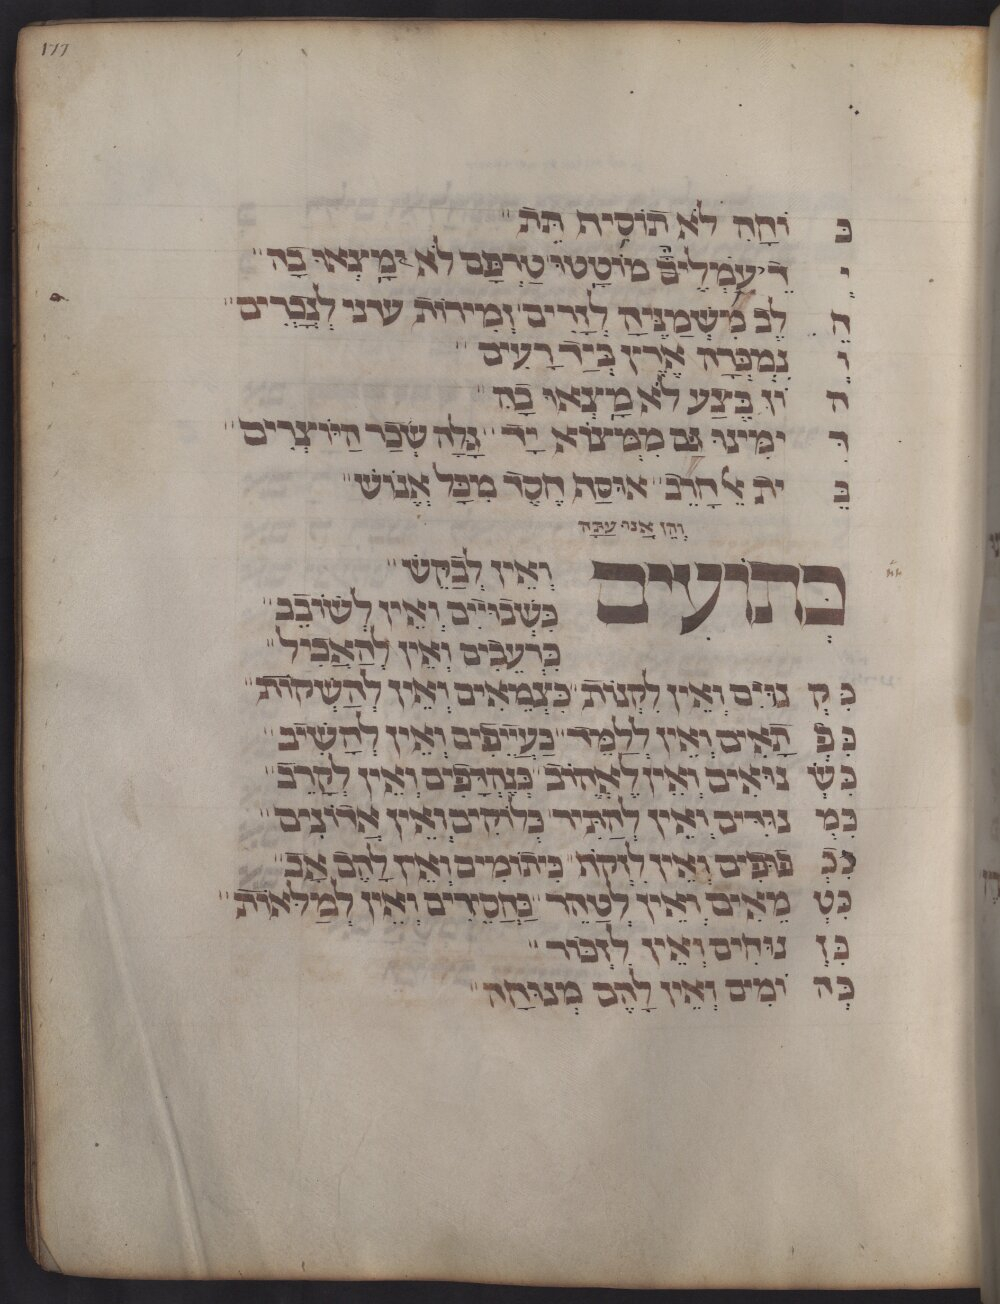 177
כּ וֹחָהּ לֹא תוֹסִיף תֵּת״
י דֵי עֲמֵלִים מוּטְטוּ טַרְפָּם לֹא יִמְצְאוּ בָהּ״
ח לֶב מִשְׁמַנֶּיהָ לְזָרִים וְמֵירוֹת עדני לְנָכְרִים״
וְ נִמְכְּרָה אֶרֶץ בְּיַד רָעִים״
ה וֹן בֶּצַע לֹא מָצְאוּ בָהּ״
דּ יִמִּינוּ גַּם מִמְּצוֹא יָד״ גָּלָה שֶׁפֶר הַיּוֹצְרִים״
בֶּ ית אֵל חָרֵב״ אוּסַף חֶסֶד מִכָּל אֱנוֹשׁ״
וְהֵן אֲנוּ עַתָּה
כְּתוֹעִים וְאֵין לְבַקֵּשׁ״
כִּשְׁבוּיִים וְאֵין לְשׁוֹבֵב״
כִּרְעֵבִים וְאֵין לְהַאֲכִיל״
כִּ קְ נוּיִם וְאֵין לִקְנוֹת״ כִּצְמֵאִים וְאֵין לְהַשְׁקוֹת״
כִּ פְּ תָאִים וְאֵין לְלַמֵּד״ כַּעֲיֵיפִים וְאֵין לְהָשִׁיב״
כִּ שְׂ נוּאִים וְאֵין לֶאֱהוֹב״ כְּנֶהְדָּפִים וְאֵין לְקָרֵב״
כִּ מְ גוּרִים וְאֵין לְהַתִּיר״ כְּלוֹקִים וְאֵין אֲדוֹנִים״
כִּ כְ פפִים וְאֵין לִזְקֹף״ כִּיתוֹמִים וְאֵין לָהֶם אָב״
כִּ טְ מֵאִים וְאֵין לְטַהֵר״ כַּחֲסֵרִים וְאֵין לְמַלְאוֹת״
כִּ זְ נוּחִים וְאֵין לִזְכּוֹר״
כְּ ה וֹמִים וְאֵין לָהֶם מְנוּחָה״